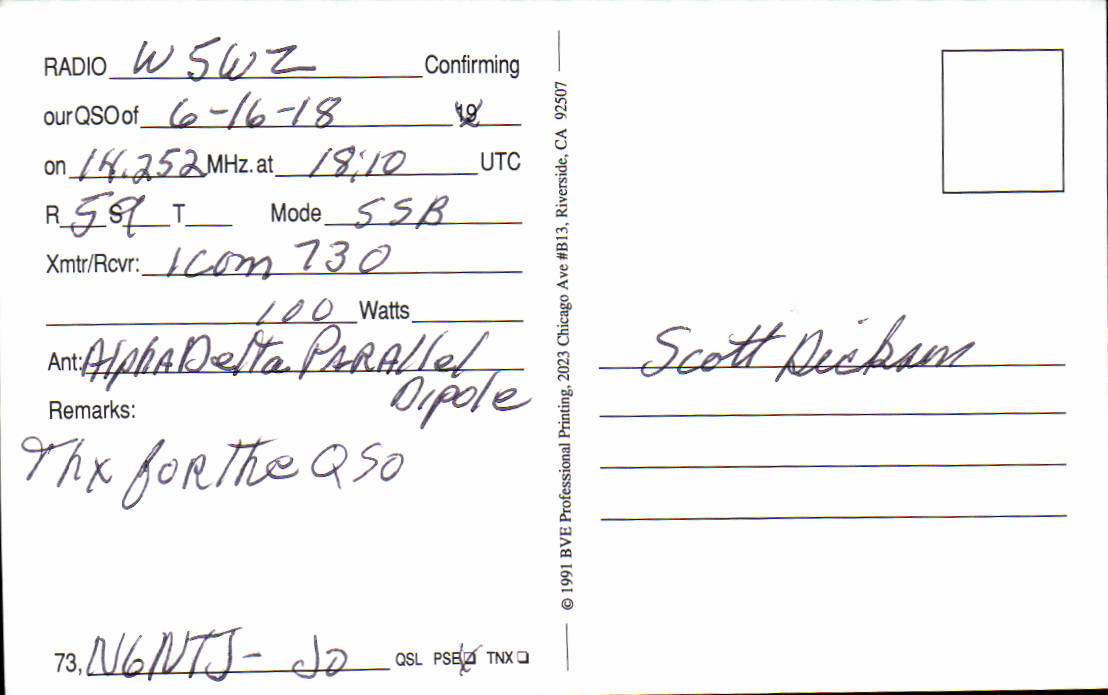 RADIO W5WZ Confirming
our QSO of 6-16-18 19
on 14.252 MHz. at 18:10 UTC
R 5 S 9 T Mode SSB
Xmtr/Rcvr: Icom 730
100 Watts
Ant: Alpha Delta PARAllel
Dipole
Remarks:
Thx foR the QSO
73, N6NTJ- Jo QSL PSE TNX
© 1991 BVE Professsional Printing, 2023 Chicago Ave #B13, Riverside, CA 92507
Scott Dickson